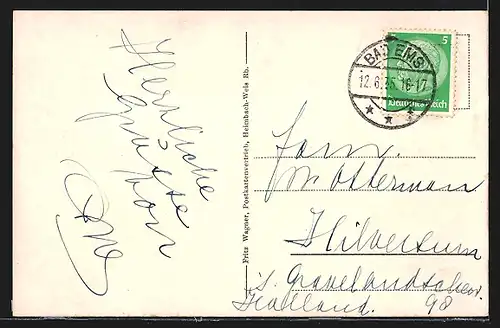 Herzliche
Grüsse
von
Fritz Wagner, Postkartenvertrieb, Heimbach-Weis Rh.
BAD EMS
12.6.35.16-17
5
Deutsches Reich
Fam.
Otterman
Hilversum
s. Gravelandschew.
Holland. 98